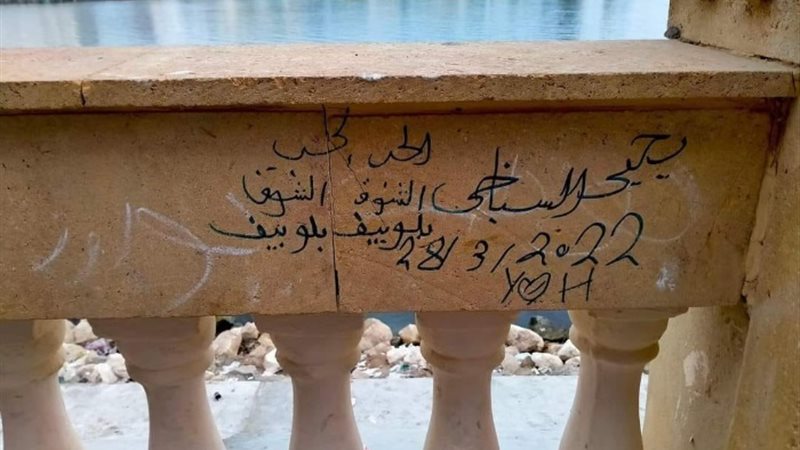 يحيى السباخي
28/3/2022
Y♡H
الحب الحب
الشوق الشوق
بلوبيف بلوبيف